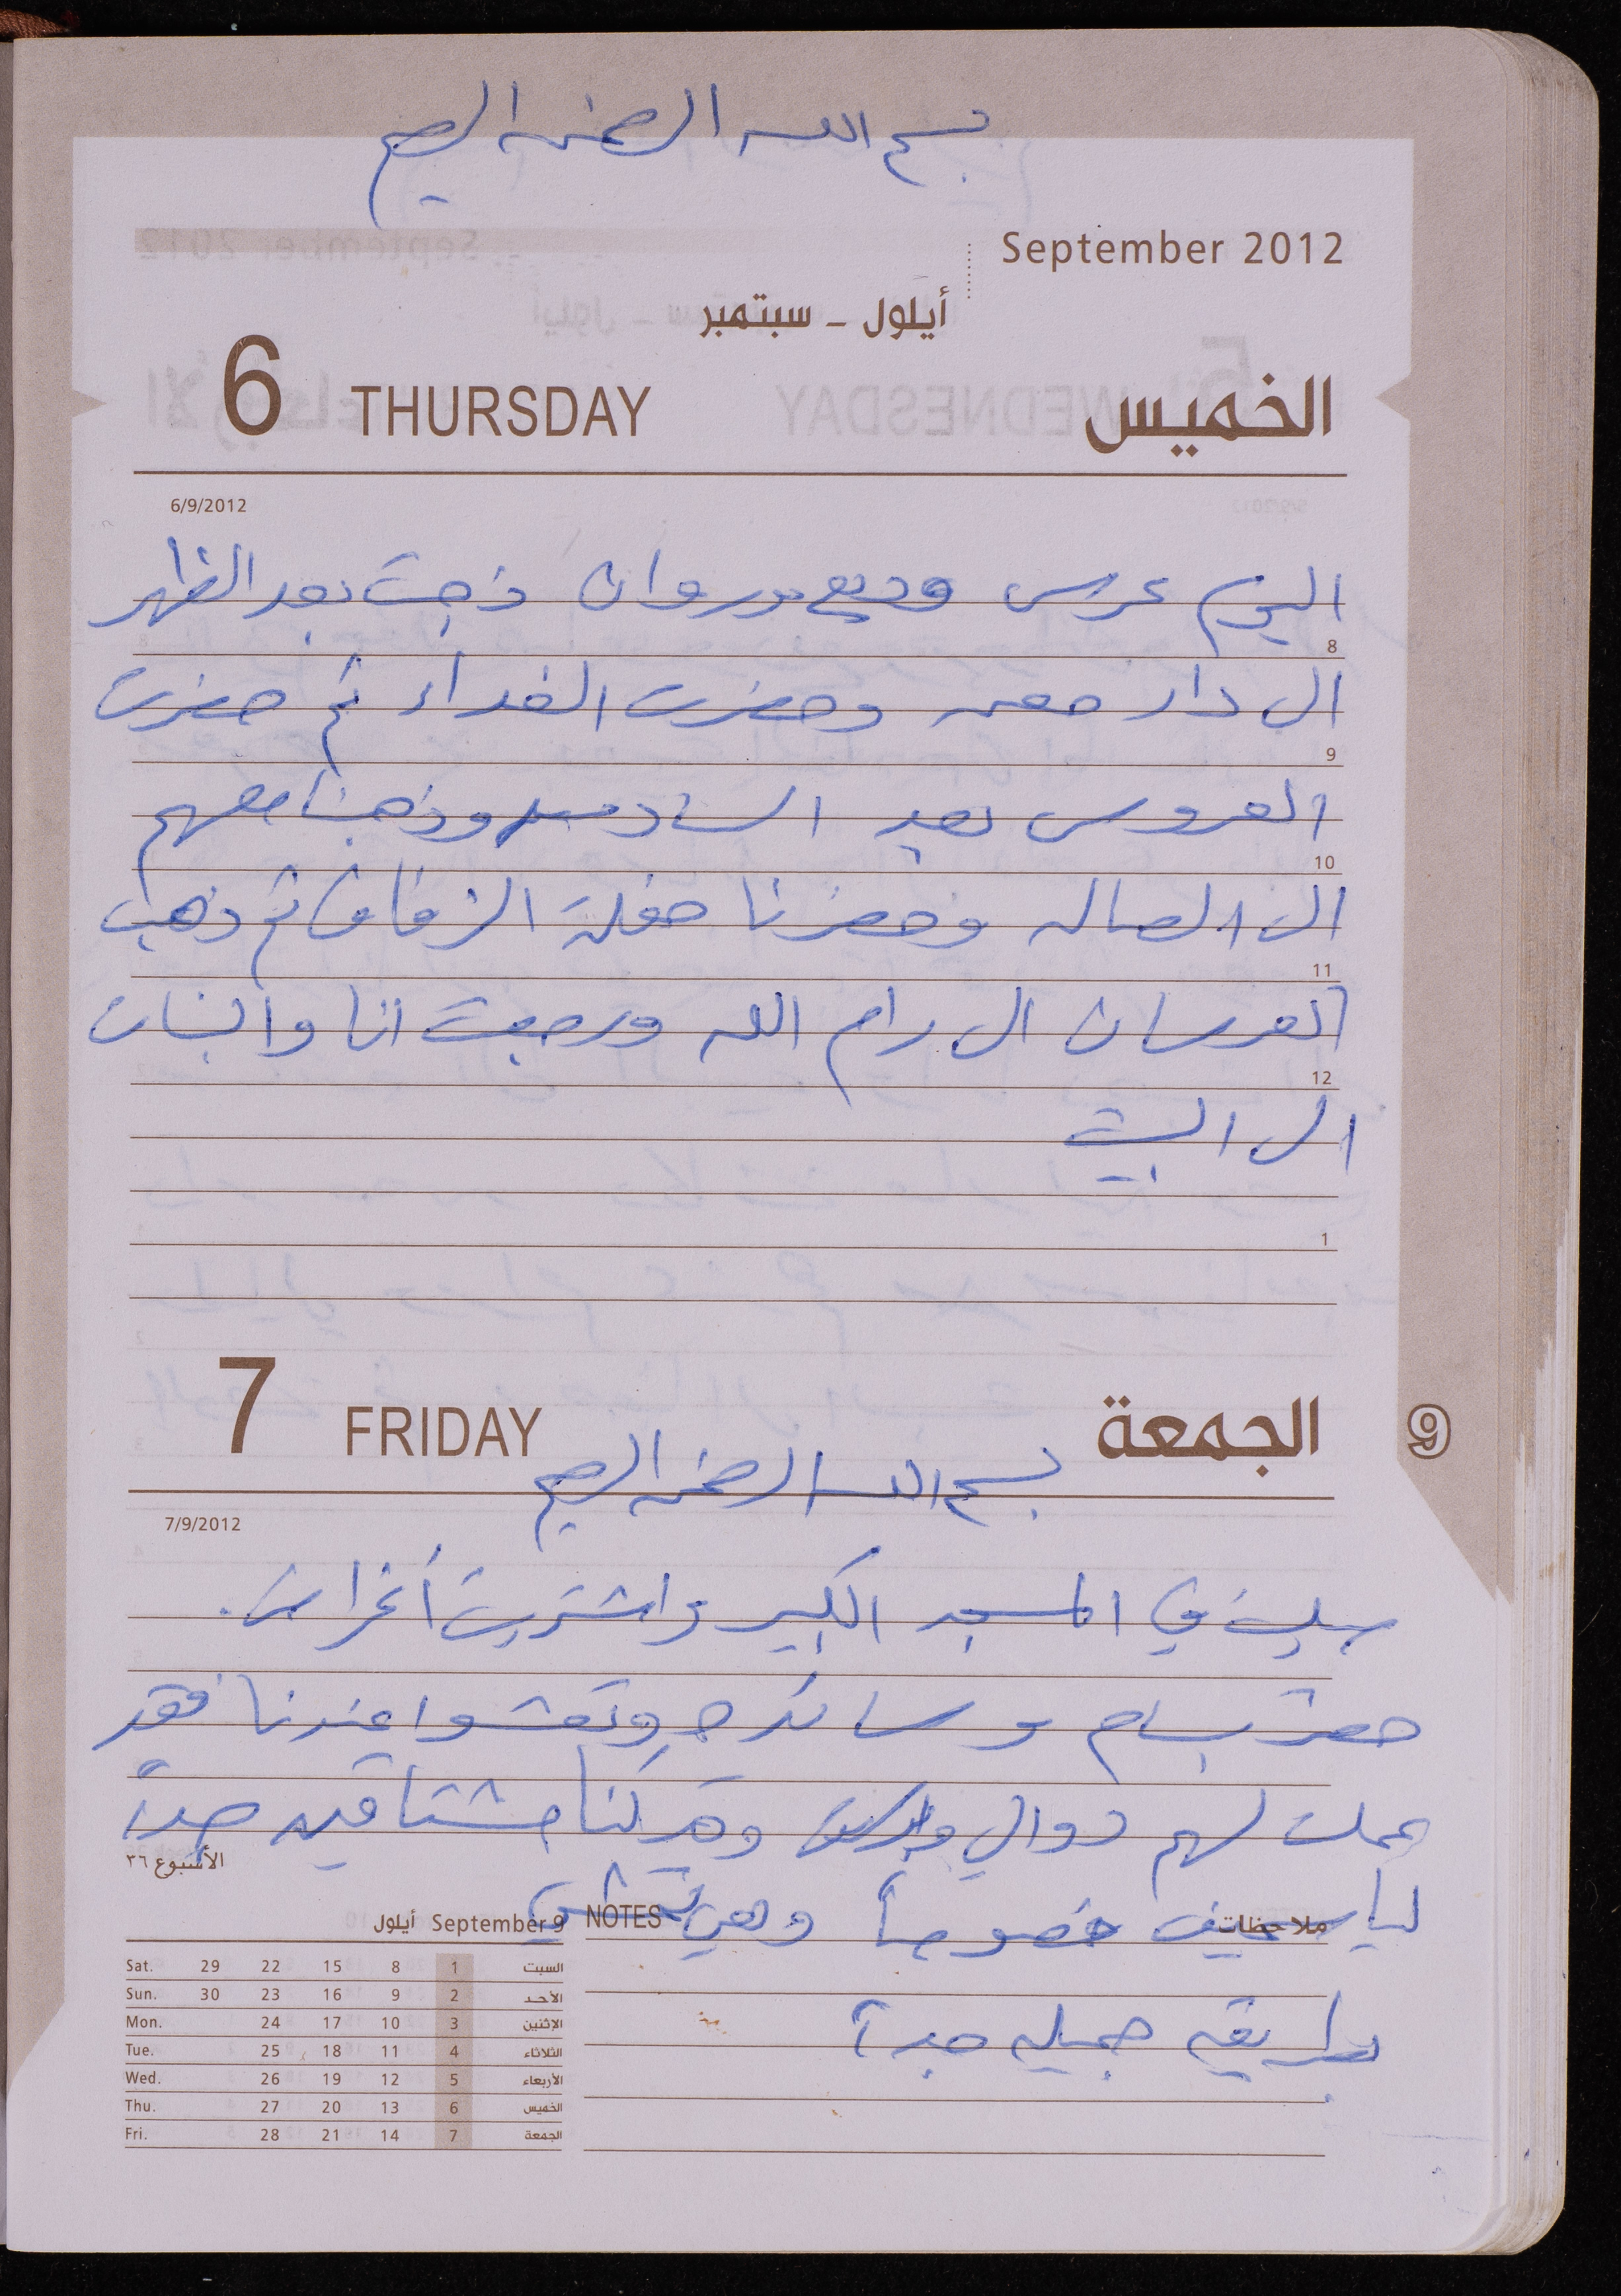 بسم الله الرحمن الرحيم
September 2012
أيلول - سبتمبر
6 THURSDAY الخميس
6/9/2012
اليوم عرس وديع وروان ذهبت بعد الظهر
8
ال دار معن وحضرت الغداء ثم حضرت
9
العروس بعد السادسه وذهبنا معهم
10
ال الصاله وحضرنا حفلة الزفاف ثم ذهب
11
العرسان ال رام الله ورجعت انا والبنات
12
ال البيت
1
7 FRIDAY الجمعة
9
بسم الله الرحمن الرحيم
7/9/2012
صليت في المسجد الكبير واشتريت أغراض.
حضر بسام وسائده وتعشوا عندنا فقد
عملت لهم دوالي وقد كنا مشتاقين جداً
الأسبوع ٣٦
لياسمين خصوصاً وهي تمشي
ملاحظات NOTES
September 9 أيلول
بطريقه جميله جداً
Sat. 29 22 15 8 1 السبت
Sun. 30 23 16 9 2 الأحد
Mon. 24 17 10 3 الإثنين
Tue. 25 18 11 4 الثلاثاء
Wed. 26 19 12 5 الأربعاء
Thu. 27 20 13 6 الخميس
Fri. 28 21 14 7 الجمعة